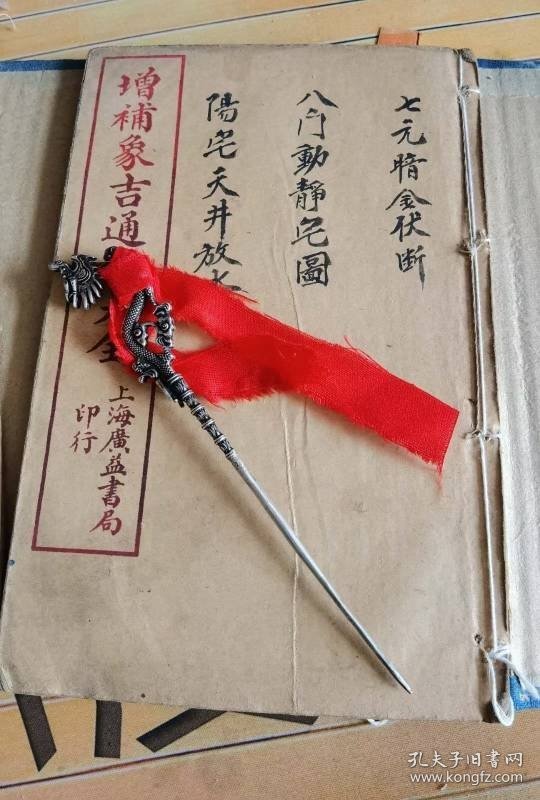 七元暗金伏断
八门動靜宅圖
陽宅天井放水
增補象吉通
全
上海廣益書局
印行
孔夫子旧书网
www.kongfz.com